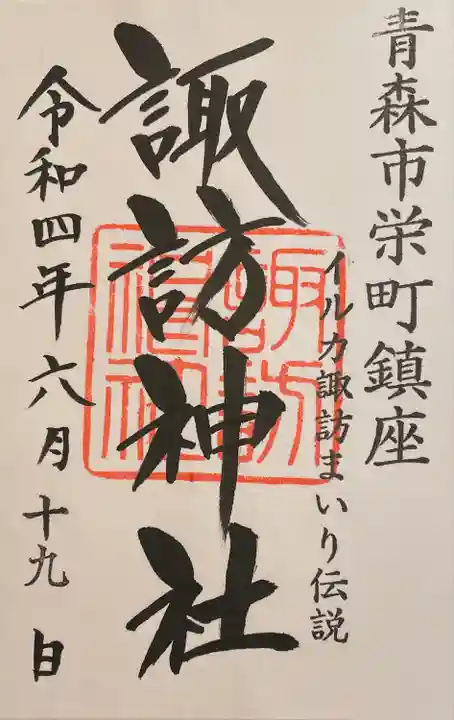 青森市栄町鎮座
イルカ諏訪まいり伝説
諏訪神社
令和四年六月十九日